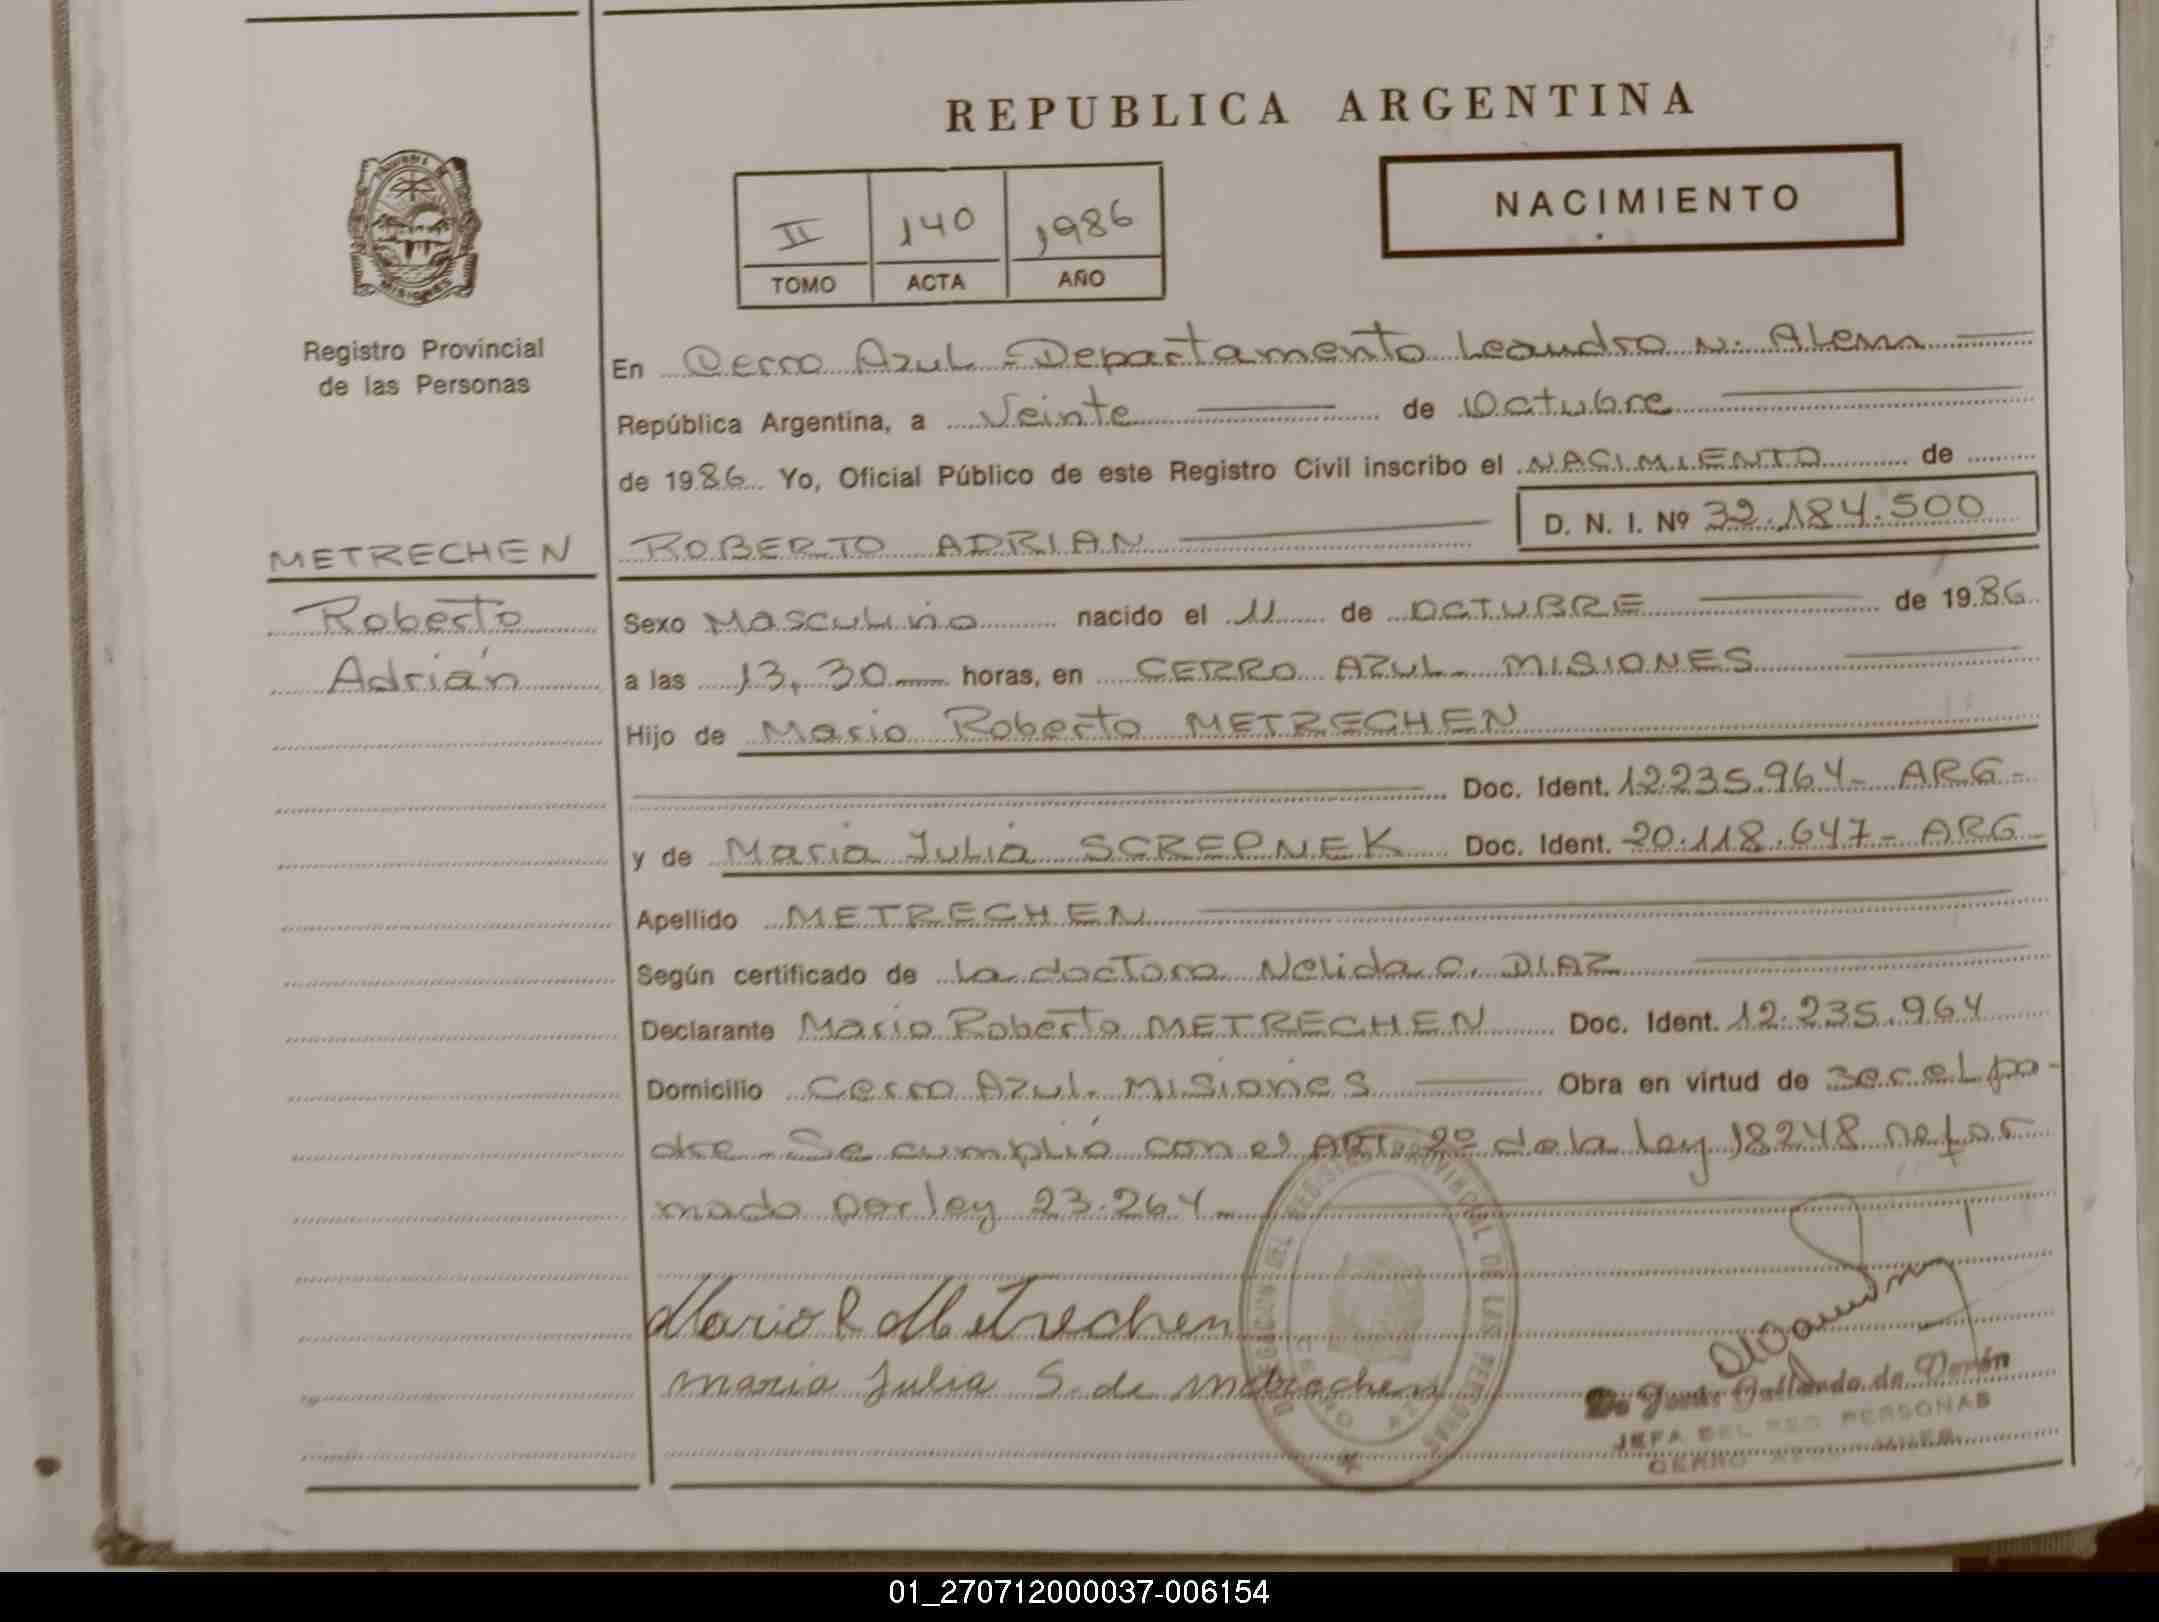 REPUBLICA ARGENTINA
NACIMIENTO
II 140 1986
TOMO ACTA AÑO
Registro Provincial
de las Personas
En Cerro Azul - Departamento Leandro N. Alem
República Argentina, a Veinte de Octubre
de 1986 Yo, Oficial Público de este Registro Civil inscribo el NACIMIENTO de
D. N. I. Nº 32.184.500
METRECHEN ROBERTO ADRIAN
Roberto
Adrián
Sexo Masculino nacido el 11 de OCTUBRE de 1986
a las 13,30 horas, en CERRO AZUL - MISIONES
Hijo de Mario Roberto METRECHEN
Doc. Ident. 12.235.964- ARG-
y de Maria Julia SCREPNEK Doc. Ident. 20.118.647- ARG-
Apellido METRECHEN
Según certificado de la doctora Nelida C. DIAZ
Declarante Mario Roberto METRECHEN Doc. Ident. 12.235.964
Domicilio Cerro Azul - Misiones Obra en virtud de ser el pa-
dre - Se cumplió con el ART. 2º de la ley 18248 refor
mado por ley 23.264 -
Mario R Metrechen
maria Julia S. de Metrechen
DELEGACION DEL REGISTRO PROVINCIAL DE LAS PERSONAS
CERRO AZUL
JEFA DEL REG PERSONAS
CERRO AZUL
01_270712000037-006154